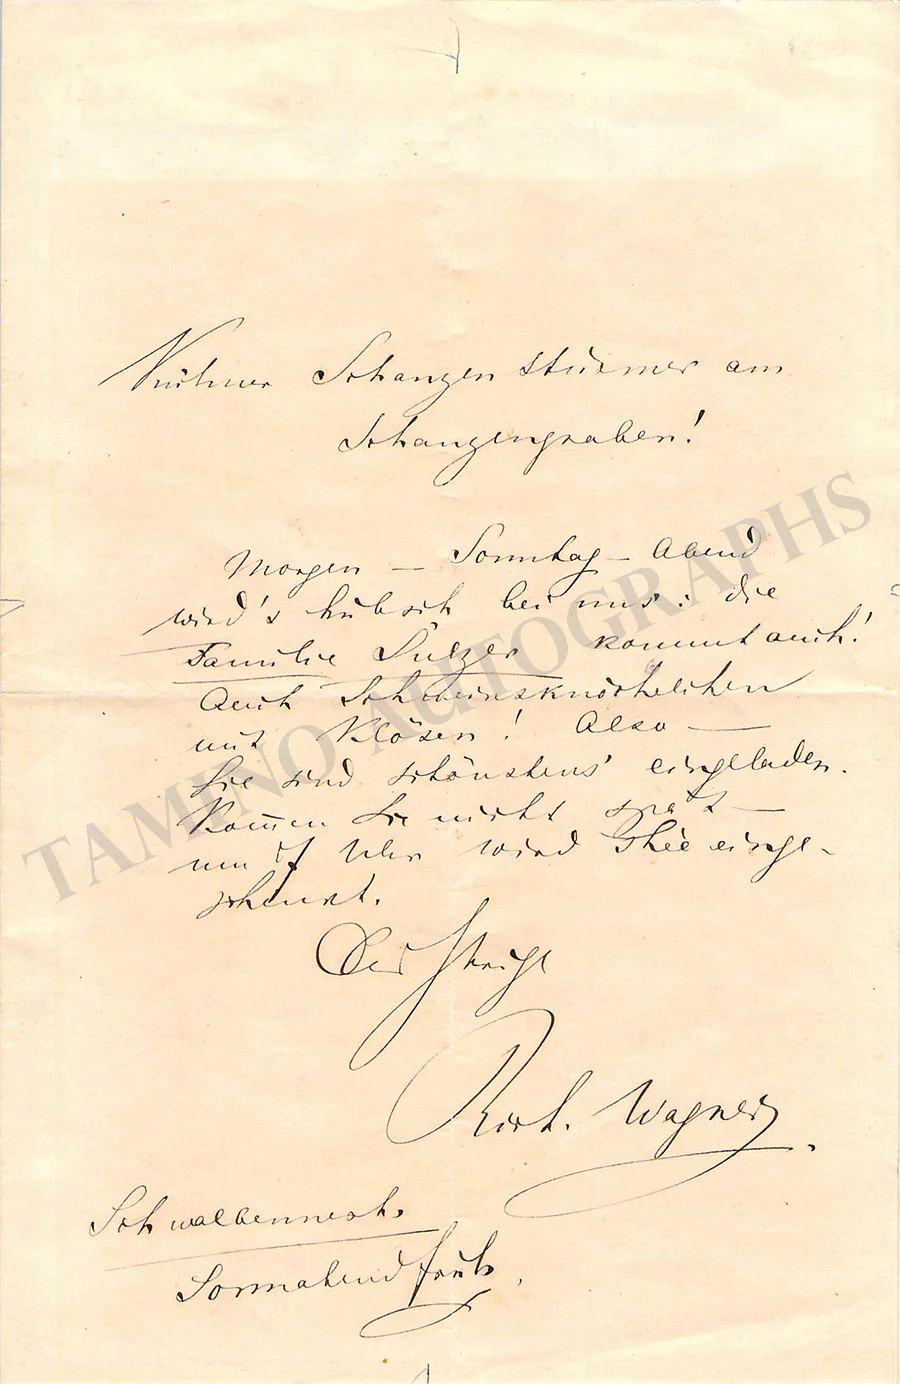 Kühner Schanzenstürmer am
Schanzengraben!
Morgen — Sonntag — Abend
wird's hübsch bei uns: die
Familie Sulzer kommt auch!
Auch Schweinsknöchelchen
mit Klösen! Also —
Sie sind schönstens eingeladen.
Kommen Sie nicht spät —
um Uhr wird Thee einge-
schenkt.
Der Ihrige
Rich. Wagner.
Schwalbennest.
Sonnabend früh
TAMINO AUTOGRAPHS